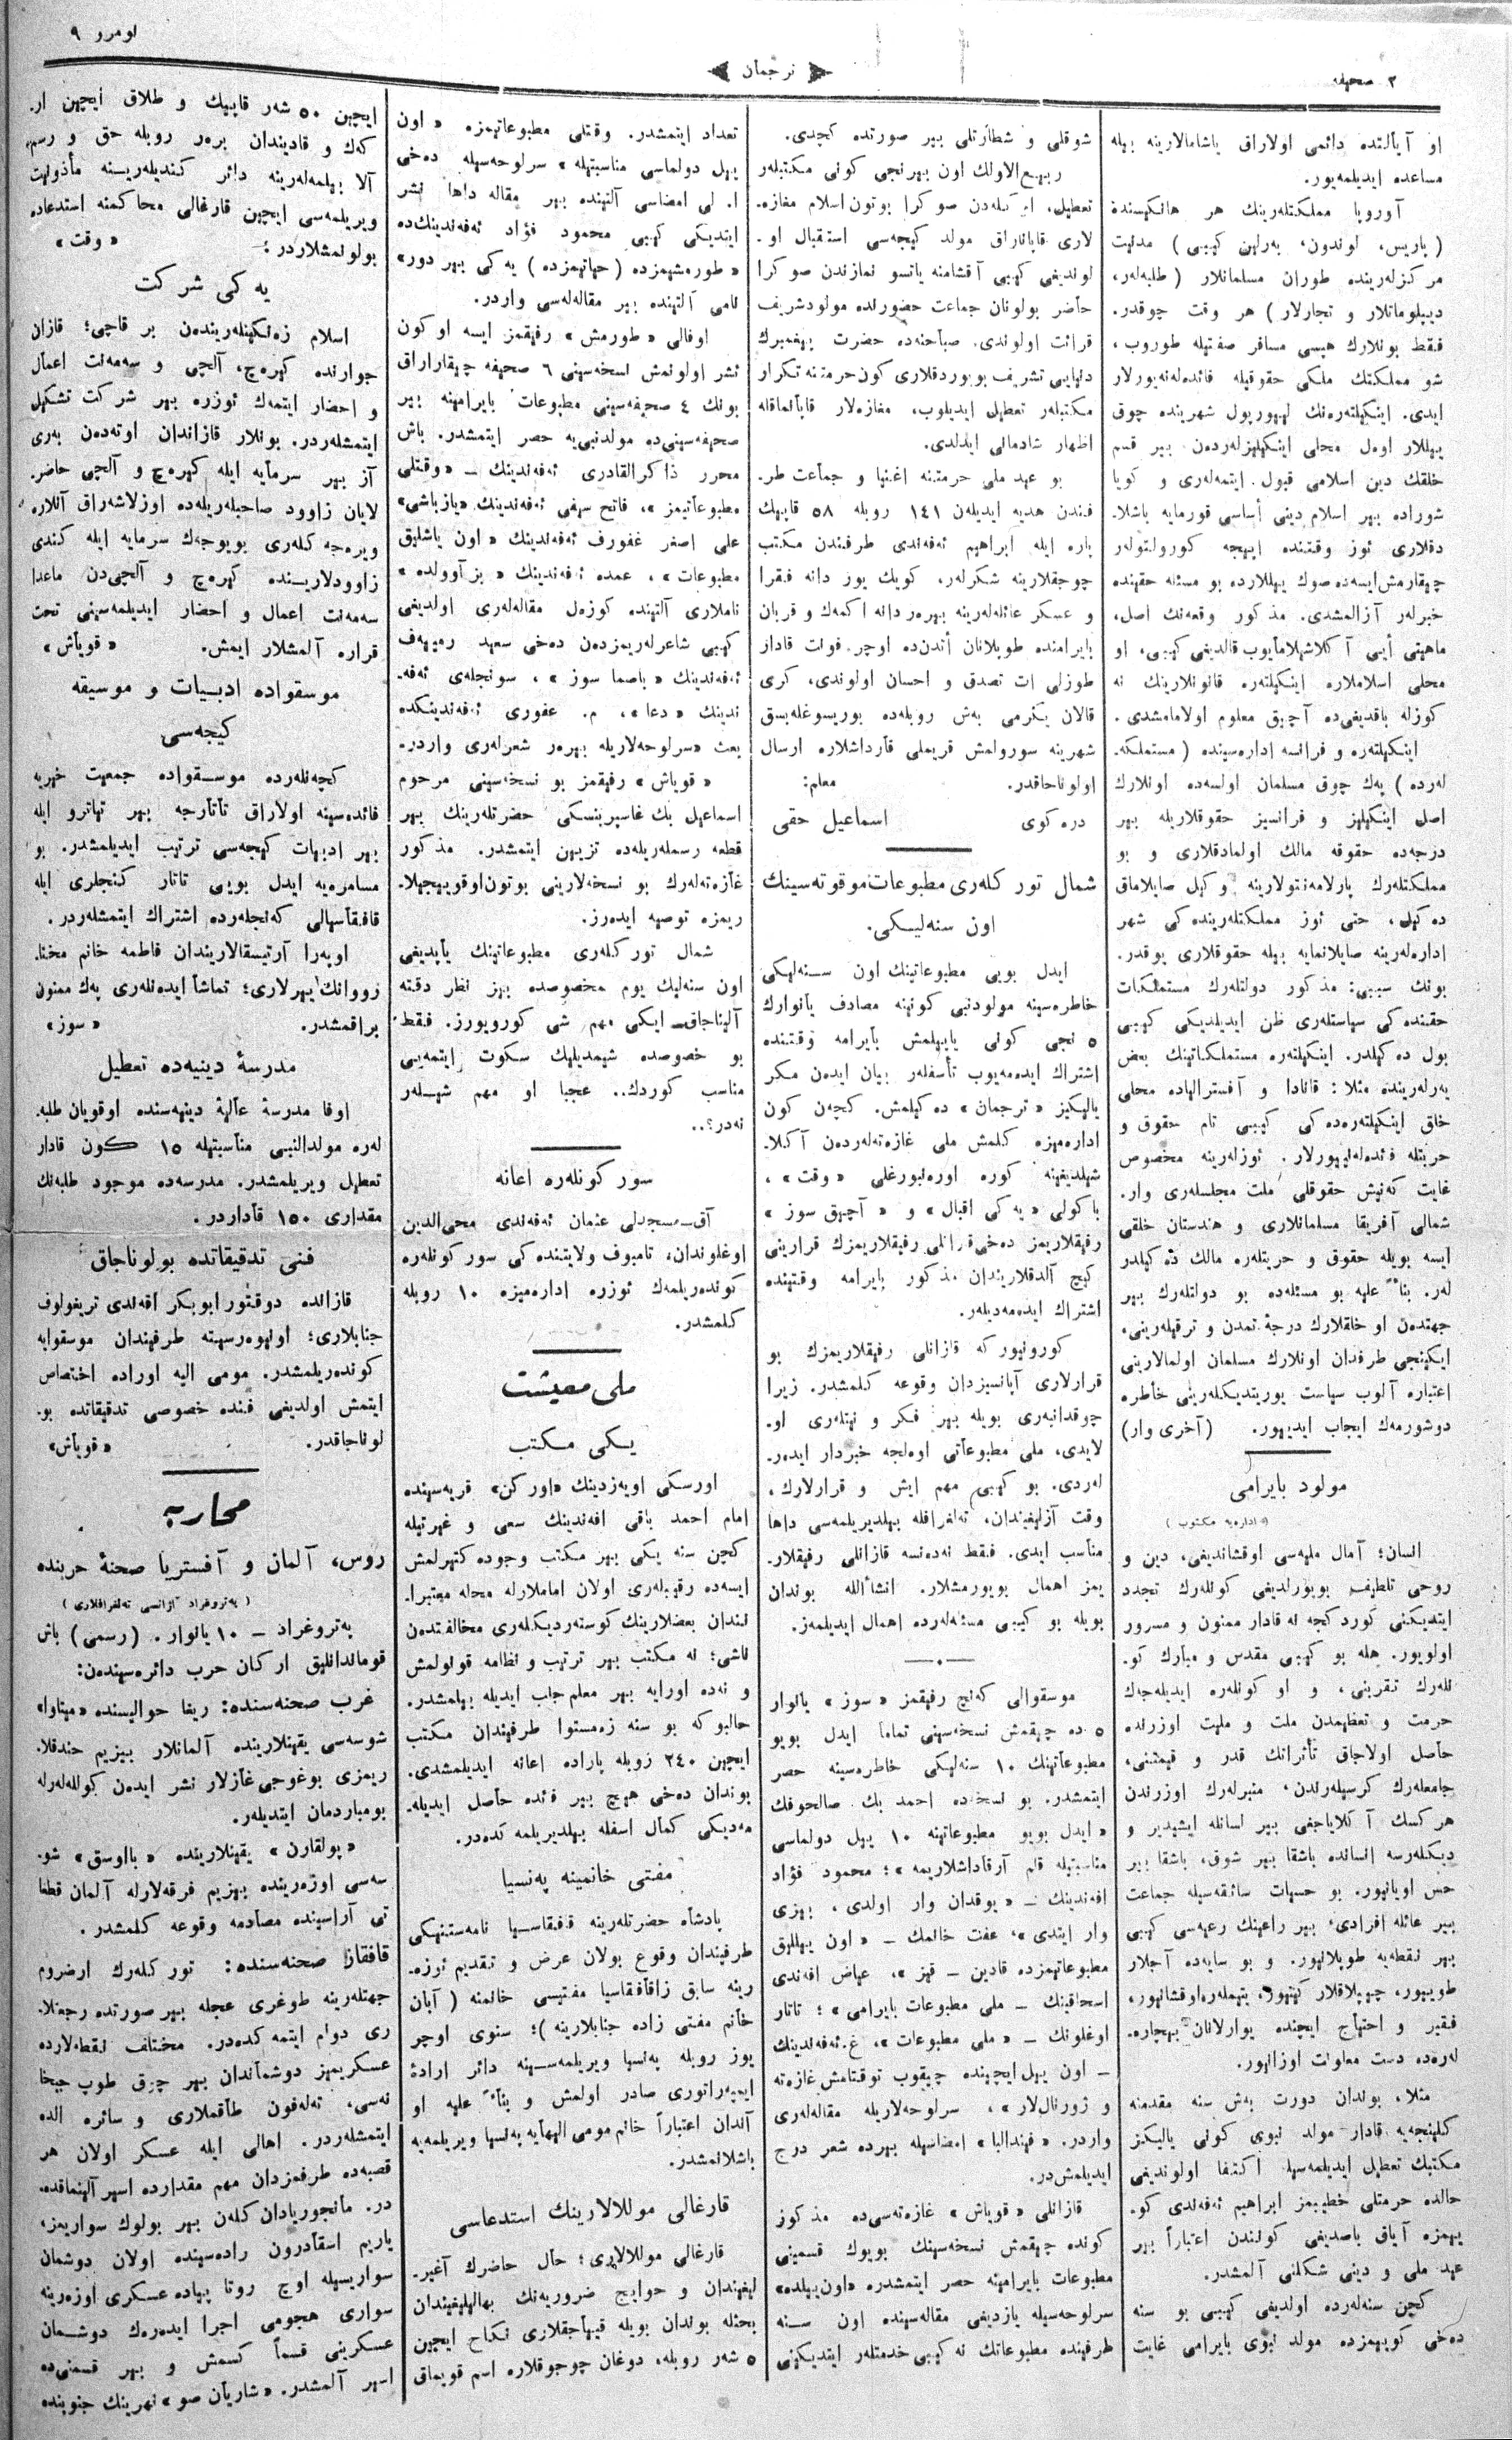 ٢ صحیفه
ترجمان
نومرو ٩
او آیالتده دائمی اولاراق یاشامالارینه بیله
مساعده ایدیلمه‌یور.
آوروپا مملکتلەرینك هر هانکیسنده
(پاریس، لوندون، بەرلین کیبی) مدنیت
مرکزلەرینده طوران مسلمانلار (طلبەلەر،
دیپلوماتلار و تجارلار) هر وقت چوقدر.
فقط بونلارك هپسی مسافر صفتیله طوروب،
شو مملکتك ملکی حقوقیله فائدەلەنەیورلار
ایدی. اینکیلتەرەنك لیورپول شهرینده چوق
ییللار اوەل محلی اینکیلیزلەردەن بیر قسم
خلقك دین اسلامی قبول ایتمەلەری و کویا
شوراده بیر اسلام دینی أساسی قورمایه باشلا-
دقلاری ئوز وقتنده ایپجه کورولتولەر
چیقارمش‌ایسەده صوك ییللارده بو مسئله حقینده
خبرلەر آزالمشدی. مذکور وقعەنك اصل،
ماهیتی أیی آکلاشیلامایوب قالدیغی کیبی، او
محلی اسلاملاره اینکیلتەره قانونلارینك نه
کوزله باقدیغی‌ده آچیق معلوم اولامامشدی.
اینکیلتەره و فرانسه اداره‌سینده (مستملکه-
لەرده) پەك چوق مسلمان اولسەده اونلارك
اصل اینکیلیز و فرانسیز حقوقلاریله بیر
درجەده حقوقه مالك اولمادقلاری و بو
مملکتلەرك پارلامەنتولارینه وکیل صایلاماق
دەکیل، حتی ئوز مملکتلەریندەکی شهر
ادارەلەرینه صایلانمایه بیله حقوقلاری یوقدر.
بونك سببی: مذکور دولتلەرك مستملکات
حقندەکی سیاستلەری ظن ایدیلدیکی کیبی
بول دەکیلدر. اینکیلتەره مستملکاتینك بعض
یەرلەرینده مثلا: قانادا و آفسترالیاده محلی
خلق اینکیلتەرەدەکی کیبی تام حقوق و
حریتله فائدەلەنیورلار. ئوزلەرینه مخصوص
غایت کەنیش حقوقلی ملت مجلسلەری وار.
شمالی آفریقا مسلمانلاری و هندستان خلقی
ایسه بویله حقوق و حریتلەره مالك دەکیلدر
لەر. بناءً علیه بو مسئلەده بو دولتلەرك بیر
جهتدەن او خلقلارك درجۀ تمدن و ترقیلەرینی،
ایکینجی طرفدان اونلارك مسلمان اولمالارینی
اعتباره آلوب سیاست یوریتدیکلەرینی خاطره
دوشورمەك ایجاب ایدیور. (آخری وار)
مولود بایرامی
(ادارەیه مکتوب)
انسان؛ آمال ملیەسی اوقشاندیغی، دین و
روحی تلطیف بویورلدیغی کونلەرك تجدد
ایتدیکنی کوردکجه نه قادار ممنون و مسرور
اولویور. هله بو کیبی مقدس و مبارك کو-
نلەرك تقربنی، و او کونلەره ایدیلەجەك
حرمت و تعظیمدن ملت و ملیت اوزرنده
حاصل اولاجاق تأثراتك قدر و قیمتنی،
جامعلەرك کرسیلەرندن، منبرلەرك اوزرندن
هر کسك آکلایاجغی بیر لسانله ایشیدیر و
دیکلەرسه انسانده باشقا بیر شوق، باشقا بیر
حس اویانیور. بو حسیات سائقەسیله جماعت
بیر عائله افرادی، بیر راعینك رعیەسی کیبی
بیر نقطەیه طوپلانیور. و بو سایەده آجلار
طوییور، چیپلاقلار کینیور، یتیملەر اوقشانیور،
فقیر و احتیاج ایچنده یوارلانان بیچاره-
لەرەده دست معاونت اوزانیور.
مثلا، بوندان دورت بەش سنه مقدمنه
کلینجەیه قادار مولد نبوی کونی یالیکیز
مکتبك تعطیل ایدیلمەسیله اکتفا اولوندیغی
حالده حرمتلی خطیبیمز ابراهیم ئەفەندی کو-
یمزه آیاق باصدیغی کونندن اعتباراً بیر
عید ملی و دینی شکلنی آلمشدر.
کچن سنەلەرده اولدیغی کیبی بو سنه
دەخی کویمزده مولد نبوی بایرامی غایت
شوقلی و شطارتلی بیر صورتده کچدی.
ربیع‌الاولك اون بیرنجی کونی مکتبلەر
تعطیل، صوکرا بوتون اسلام مغازه-
لاری قاپاناراق مولد کیجەسی استقبال او-
لوندیغی کیبی آقشامنه یاتسو نمازندن صوکرا
حاضر بولونان جماعت حضورنده مولودشریف
قرائت اولوندی. صباحنەده حضرت پیغمبرك
دنیایی تشریف بویوردقلاری کون حرمتنه تکرار
مکتبلەر تعطیل ایدیلوب، مغازەلار قاپانماقله
اظهار شادمانی ایدلدی.
بو عید ملی حرمتنه اغنیا و جماعت طر-
فندن هدیه ایدیلەن ١٤١ روبله ٥٨ قاپیك
پاره ایله ابراهیم ئەفەندی طرفندن مکتب
چوجقلارینه شکرلەر، کویك یوز دانه فقرا
و عسکر عائلەلەرینه بیرەر دانه اکمەك و قربان
بایرامنده طوپلانان أتدن‌ده اوچر فونت قادار
طوزلی ات تصدق و احسان اولوندی، کری
قالان یکرمی بەش روبلەده بوریسوغلەبسق
شهرینه سورولمش قریملی قارداشلاره ارسال
اولوناجاقدر. معلم:
دره کوی اسماعیل حقی
شمال تورکلەری مطبوعات موقوتەسینك
اون سنەلیکی.
ایدل بویی مطبوعاتینك اون سنەلیکی
خاطرەسینه مولودنبی کونینه مصادف یانوارك
٥ نجی کونی یاپیلمش بایرامه وقتنده
اشتراك ایدەمەیوب تأسفلەر بیان ایدەن مکر
یالیکیز «ترجمان» دەکیلمش. کچەن کون
ادارەمیزه کلمش ملی غازەتەلەردەن آکلا-
شیلدیغینه کوره اورەنبورغلی «وقت»،
باکولی «یەکی اقبال» و «آچیق سوز»
رفیقلاریمز دەخی قازانلی رفیقلاریمزك قرارینی
کیچ آلدقلاریندان مذکور بایرامه وقتینده
اشتراك ایدەمەدیلەر.
کورونیور که قازانلی رفیقلاریمزك بو
قرارلاری آپانسیزدان وقوعه کلمشدر. زیرا
چوقدانبەری بویله بیر فکر و نیتلەری او-
لایدی، ملی مطبوعاتی اوەلجه خبردار ایدەر-
لەردی. بو کیبی مهم ایش و قرارلارك،
وقت آزلیغیندان، تەلغرافله بیلدیریلمەسی داها
مناسب ایدی. فقط نەدەنسه قازانلی رفیقلار-
یمز اهمال بویورمشلار. انشاءالله بوندان
بویله بو کیبی مسئلەلەرده اهمال ایدیلمەز.
موسقوالی کەنج رفیقمز «سوز» یانوار
٥ ده چیقمش نسخەسینی تماماً ایدل بویو
مطبوعاتینك ١٠ سنەلیکی خاطرەسینه حصر
ایتمشدر. بو نسخەده احمد بك صالحوفك
«ایدل بویو مطبوعاتینه ١٠ ییل دولماسی
مناسبتیله قلم آرقاداشلاریمه»؛ محمود فؤاد
افەندینك — «یوقدان وار اولدی، بیزی
وار ایتدی»، عفت خانمك — «اون ییللیق
مطبوعاتیمزده قادین — قیز»، عیاض افەندی
اسحاقینك — ملی مطبوعات بایرامی»؛ تاتار
اوغلونك — «ملی مطبوعات»، غ. ئەفەندینك
— اون ییل ایچینده چیقوب توقتامش غازەته
و ژورنال‌لار»، سرلوحەلاریله مقالەلەری
واردر. «فیندالیا» امضاسیله بیرده شعر درج
ایدیلمش‌در.
قازانلی «قویاش» غازەتەسی‌ده مذکور
کونده چیقمش نسخەسینك بویوك قسمینی
مطبوعات بایرامینه حصر ایتمشدره «اون‌ییلده»
سرلوحەسیله یازدیغی مقالەسینده اون سنه
ظرفینده مطبوعاتك نه کیبی خدمتلەر ایتدیکینی
تعداد ایتمشدر. وقتلی مطبوعاتیمزه «اون
ییل دولماسی مناسبتیله» سرلوحەسیله دەخی
ا. لی امضاسی آلتینده بیر مقاله داها نشر
ایتدیکی کیبی محمود فؤاد ئەفەندینك‌ده
«طورمشیمزده (حیاتیمزده) یەکی بیر دور»
نامی آلتینده بیر مقالەلەسی واردر.
اوفالی «طورمش» رفیقمز ایسه او کون
نشر اولونمش نسخەسینی ٦ صحیفه چیقاراراق
بونك ٤ صحیفەسینی مطبوعات بایرامینه بیر
صحیفەسینی‌ده مولدنبی‌یه حصر ایتمشدر. باش
محرر ذاکرالقادری ئەفەندینك — «وقتلی
مطبوعاتیمز»، فاتح سیفی ئەفەندینك «یازباشی»
علی اصغر غفورف ئەفەندینك «اون یاشلیق
مطبوعات»، عمده ئەفەندینك «بزآوولده»
ناملاری آلتینده کوزەل مقالەلەری اولدیغی
کیبی شاعرلەریمزدەن دەخی سعید رمییەف
ئەفەندینك «باصما سوز»، سونجلەی ئەفه-
ندینك «دعا»، م. غفوری ئەفەندینکده
بعث «سرلوحەلاریله بیرەر شعرلەری واردر.
«قویاش» رفیقمز بو نسخەسینی مرحوم
اسماعیل بك غاسپرینسکی حضرتلەرینك بیر
قطعه رسملەریلەده تزیین ایتمشدر. مذکور
غازەتەلەرك بو نسخەلارینی بوتون‌اوقویجیلا-
ریمزه توصیه ایدەرز.
شمال تورکلەری مطبوعاتینك یاپدیغی
اون سنەلیك یوم مخصوصده بیز نظر دقته
آلیناجاق ایکی مهم شی کورویورز. فقط
بو خصوصده شیمدیلیك سکوت ایتمەیی
مناسب کوردك.. عجبا او مهم شیلەر
نەدر؟..
سورکونلەره اعانه
آق‌مسجدلی عثمان ئەفەندی محی‌الدین
اوغلوندان، تامبوف ولایتندەکی سورکونلەره
کوندەریلمەك ئوزره ادارەمیزه ١٠ روبله
کلمشدر.
ملی معیشت
یکی مکتب
اورسکی اویەزدینك «اورکن» قریەسینده
امام احمد باقی افەندینك سعی و غیرتیله
کچن سنه یکی بیر مکتب وجوده کتیرلمش
ایسەده رقیبلەری اولان اماملارله محله معتبرا-
تندان بعضلارینك کوستەردیکلەری مخالفتدەن
ناشی؛ نه مکتب بیر ترتیب و نظامه قونولمش
و نەده اورایه بیر معلم جلب ایدیله بیلمشدر.
حالبوکه بو سنه زەمستوا طرفیندان مکتب
ایچین ٢٤٠ روبله پاراده اعانه ایدیلمشدی.
بوندان دەخی هیچ بیر فائده حاصل ایدیله-
مەدیکی کمال اسفله بیلدیریلمەکدەدر.
مفتی خانمینه پەنسیا
پادشاه حضرتلەرینه قافقاسیا نامەستنیکی
طرفیندان وقوع بولان عرض و تقدیم ئوزه-
رینه سابق زاقافقاسیا مفتیسی خانمنه (آبان
خانم مفتی زاده جنابلارینه)؛ سنوی اوچر
یوز روبله پەنسیا ویریلمەسینه دائر ارادۀ
ایمپەراتوری صادر اولمش و بناءً علیه او
آندان اعتباراً خانم مومی الیهایه پەنسیا ویریلمەیه
باشلانمشدر.
قارغالی موللالارینك استدعاسی
قارغالی موللالاری؛ حال حاضرك آغیر-
لیغیندان و حوایج ضروریەنك بهالیلیغیندان
بحثله بوندان بویله قییاجقلاری نکاح ایچین
٥ شەر روبله، دوغان چوجوقلاره اسم قویماق
ایچین ٥٠ شەر قاپیك و طلاق ایچین ار-
کەك و قادیندان برەر روبله حق و رسم
آلا بیلمەلەرینه دائر کندیلەرینه مأذونیت
ویریلمەسی ایچین قارغالی محاکمنه استدعاده
بولونمشلاردر. «وقت»
یەکی شرکت
اسلام زەنکینلەریندەن بر قاچی؛ قازان
جوارنده کیرەچ، آلچی و سەمەنت اعمال
و احضار ایتمەك ئوزره بیر شرکت تشکیل
ایتمشلەردر. بونلار قازاندان اوتەدەن بەری
آز بیر سرمایه ایله کیرەچ و آلچی حاضر-
لایان زاوود صاحبلەریلەده اوزلاشاراق آنلاره
ویرەجەکلەری بویوجەك سرمایه ایله کندی
زاوودلارینده کیرەچ و آلچی‌دن ماعدا
سەمەنت اعمال و احضار ایدیلمەسینی تحت
قراره آلمشلار ایمش. «قویاش»
موسقواده ادبیات و موسیقه
کیجەسی
کچەنلەرده موسقواده جمعیت خیریه
فائدەسینه اولاراق تاتارجه بیر تیاترو ایله
بیر ادبیات کیجەسی ترتیب ایدیلمشدر. بو
مسامرەیه ایدل بویی تاتار کنجلری ایله
قافقاسیالی کەنجلەرده اشتراك ایتمشلەردر.
اوپەرا آرتیسقالاریندان فاطمه خانم مختا-
رووانك ییرلاری؛ تماشا ایدەنلەری پەك ممنون
براقمشدر. «سوز»
مدرسۀ دینیەده تعطیل
اوفا مدرسۀ عالیۀ دینیەسنده اوقویان طلبه-
لەره مولدالنبی مناسبتیله ١٥ کون قادار
تعطیل ویریلمشدر. مدرسەده موجود طلبەنك
مقداری ١٥٠ قاداردر.
فنی تدقیقاتده بولوناجاق
قازانده دوقتور ابوبکر افەندی تریغولوف
جنابلاری؛ اونیوەرسیته طرفیندان موسقوایه
کوندەریلمشدر. مومی الیه اوراده اختصاص
ایتمش اولدیغی فنده خصوصی تدقیقاتده بو-
لوناجاقدر. «قویاش»
محاربه
روس، آلمان و آفستریا صحنۀ حربنده
(پەتروغراد آژانسی تەلغرافلاری)
پەتروغراد — ١٠ یانوار. (رسمی) باش
قوماندانلیق ارکان حرب دائرەسیندەن:
غرب صحنەسنده: ریغا حوالیسنده «میتاوا»
شوسەسی یقینلارینده آلمانلار بیزیم خندقلا-
ریمزی بوغوجی غازلار نشر ایدەن کوللەلەرله
بومباردمان ایتدیلەر.
«پولقارن» یقینلارینده «بااوسق» شو-
سەسی اوزەرینده بیزیم فرقەلارله آلمان قطعا
تی آراسینده مصادمه وقوعه کلمشدر.
قافقازا صحنەسنده: تورکلەرك ارضروم
جهتلەرینه طوغری عجله بیر صورتده رجعتلا-
ری دوام ایتمەکدەدر. مختلف نقطەلارده
عسکریمیز دوشماندان بیر چوق طوپ جبخا
نەسی، تەلەفون طاقملاری و سائره الده
ایتمشلەردر. اهالی ایله عسکر اولان هر
قصبەده طرفمزدان مهم مقدارده اسیر آلینماقده-
در. مانجوریادان کلەن بیر بولوك سواریمز،
یاریم اسقادرون رادەسینده اولان دوشمان
سواریسیله اوچ روتا پیاده عسکری اوزەرینه
سواری هجومی اجرا ایدەرەك دوشمان
عسکرینی قسماً کسمش و بیر قسمنی‌ده
اسیر آلمشدر. «شاریان صو» نهرینك جنوبنده